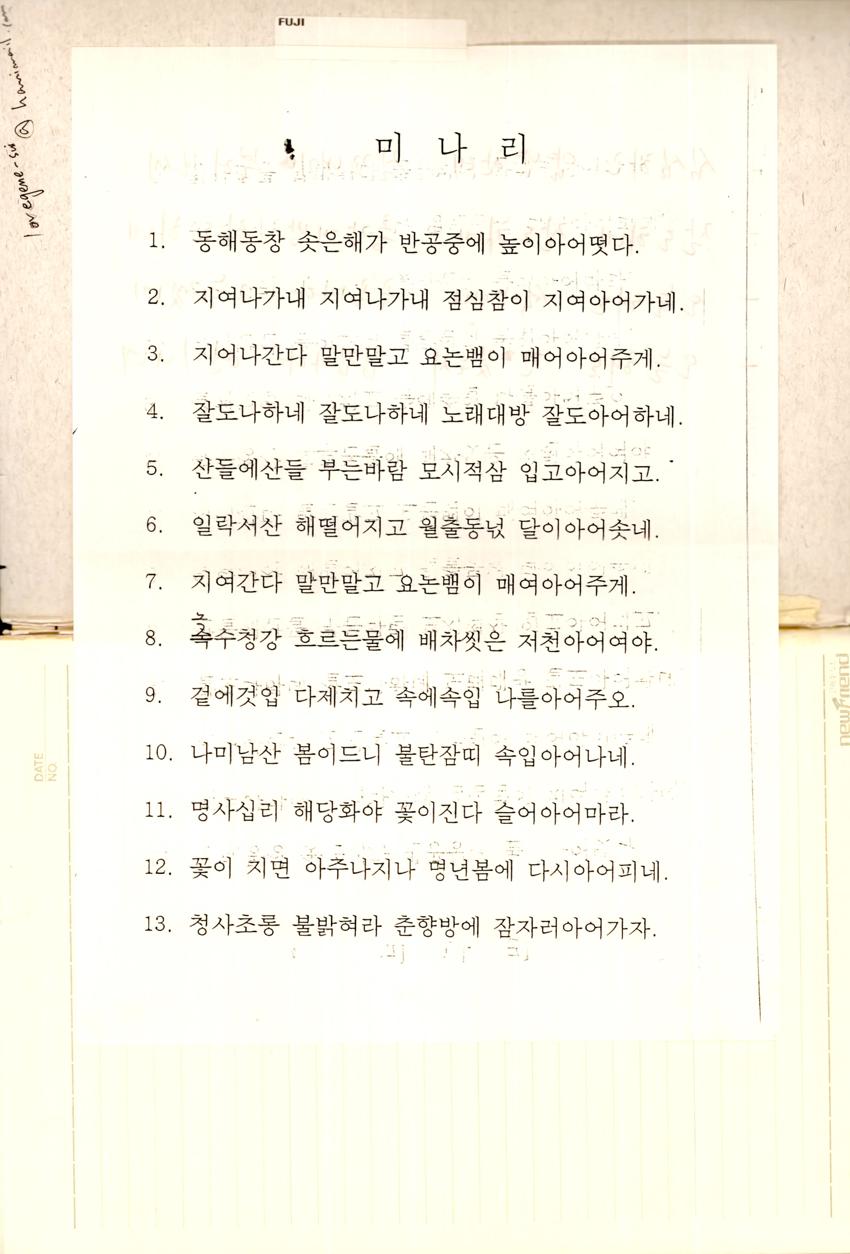 FUJI
미 나 리
1. 동해동창 솟은해가 반공중에 높이아어떳다.
2. 지여나가내 지여나가내 점심참이 지여아어가네.
3. 지어나간다 말만말고 요논뱀이 매어아어주게.
4. 잘도나하네 잘도나하네 노래대방 잘도아어하네.
5. 산들에산들 부는바람 모시적삼 입고아어지고.
6. 일락서산 해떨어지고 월출동넋 달이아어솟네.
7. 지여간다 말만말고 요논뱀이 매여아어주게.
녹
8. 속수청강 흐르는물에 배차씻은 저천아어여야.
9. 겉에것입 다제치고 속에속입 나를아어주오.
10. 나미남산 봄이드니 불탄잠띠 속입아어나네.
11. 명사십리 해당화야 꽃이진다 슬어아어마라.
12. 꽃이 치면 아주나지나 명년봄에 다시아어피네.
13. 청사초롱 불밝혀라 춘향방에 잠자러아어가자.
DATE
NO.
newfriend